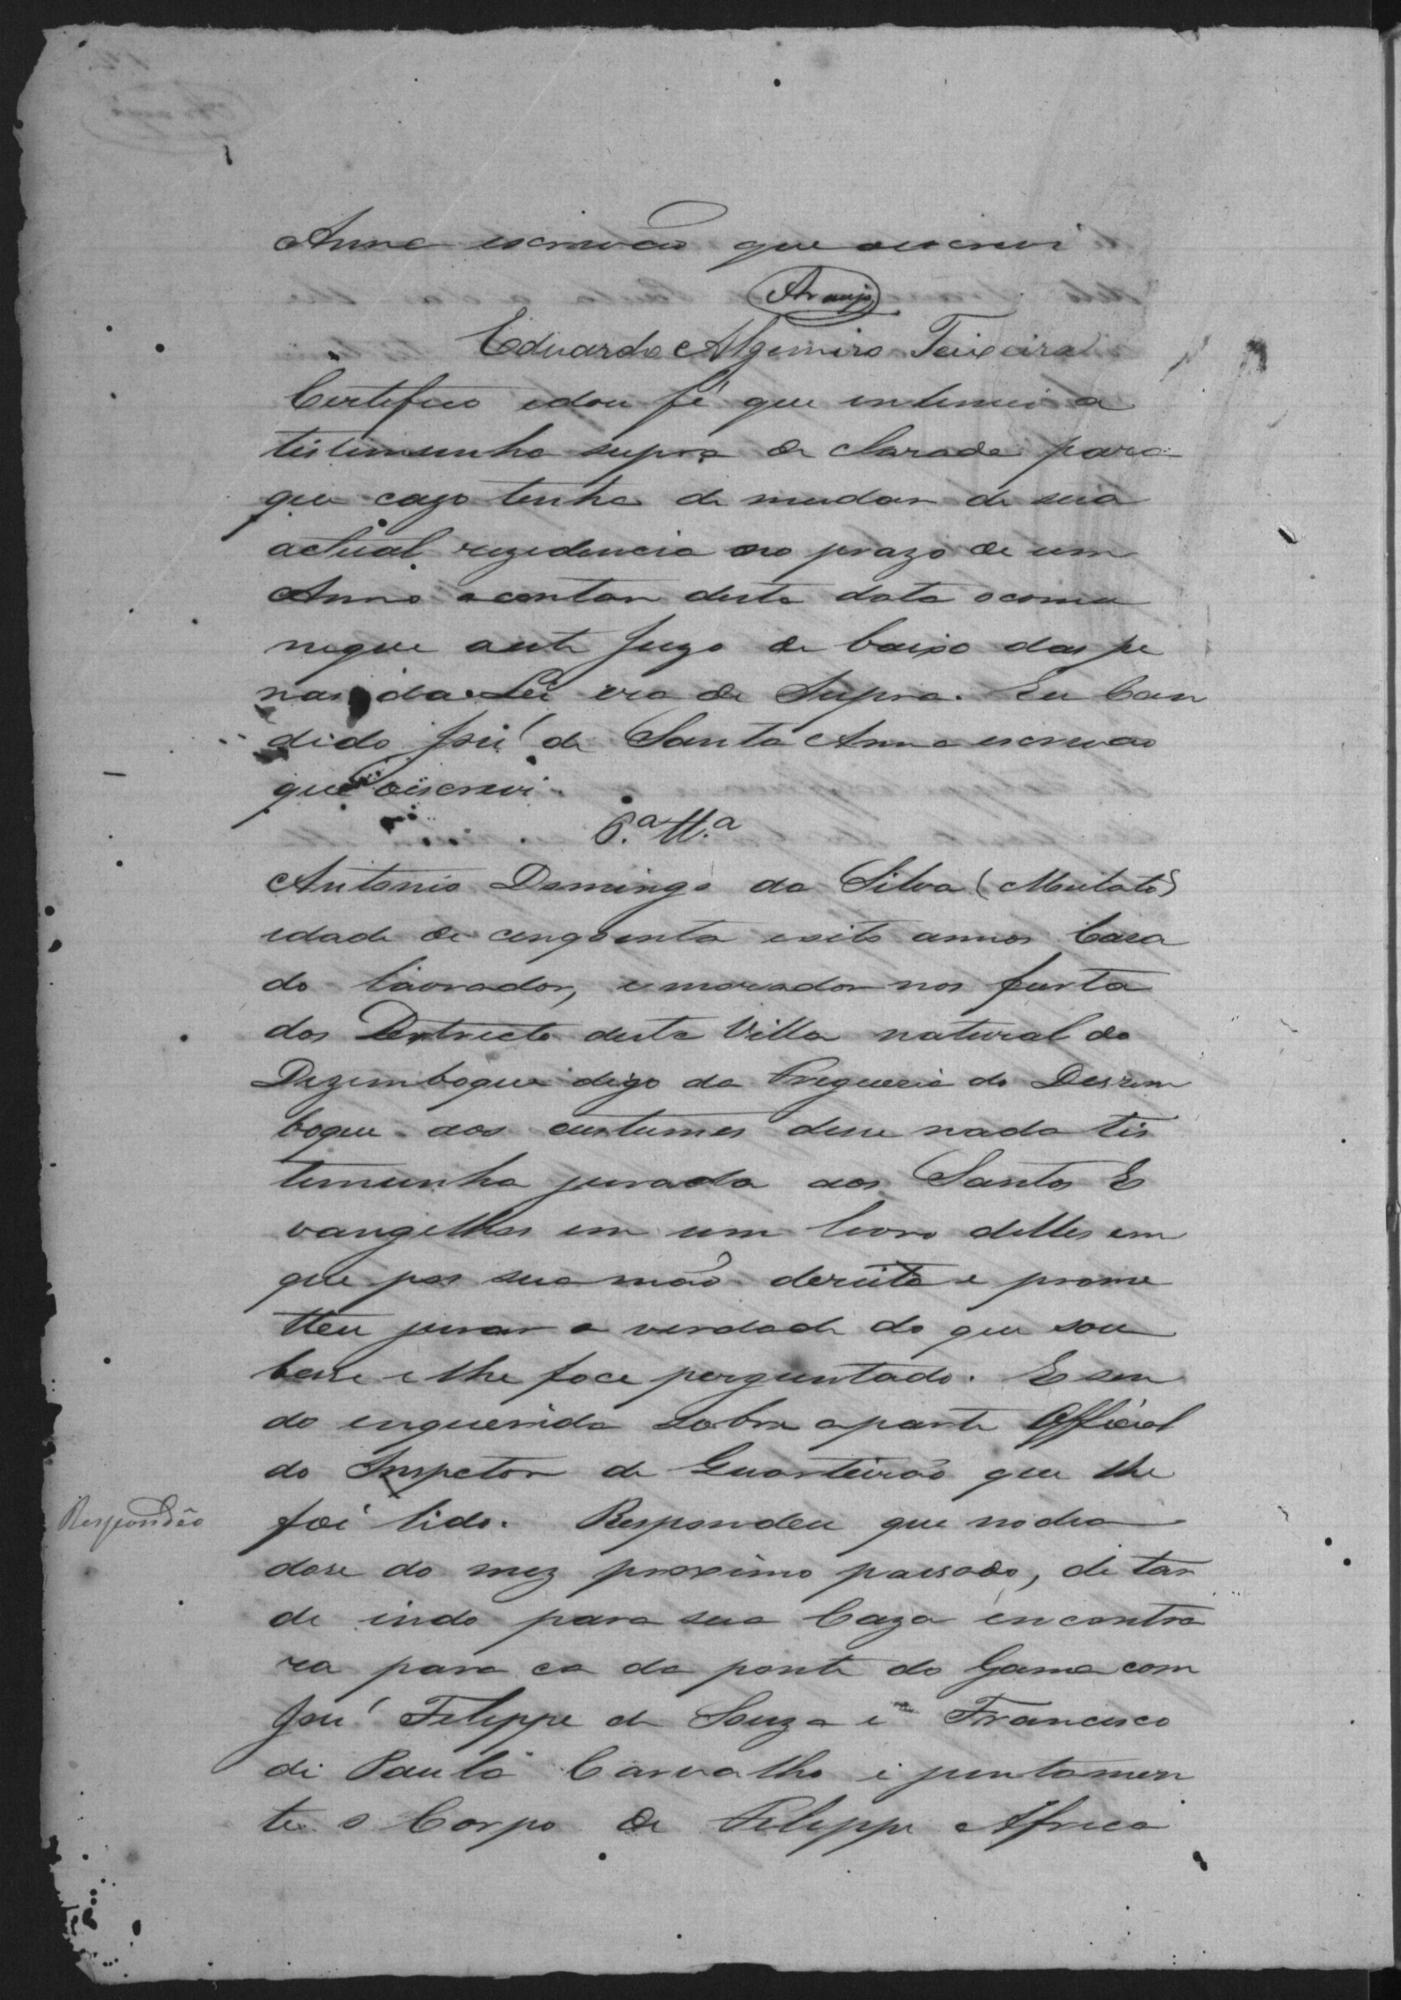 Anna escrivão que oescrevi
Araujo
Eduardo Algemiro Teixeira
Certefico edou fé que intimei a
testimunha supra de clarada para
que cazo tenha de mudar de sua
actual rezidencia no prazo de um
Anno acontar desta data ocomu
nique aeste Juizo de baixo das pe
nas da Lei era de Supra. Eu Can
dido José de Santa Anna escrivão
que oiscrevi.
6.ª tt.ª
Antonio Domingo da Silva (Mulato)
idade de cinqoenta eoito annos Caza
do lavrador, emorador nos
dos Destricto desta Villa natural do
Dezemboque digo da Freguezia do Desem
boque aos custumes disse nada tes
timunha jurada aos Santos E
vangelhos em um livro delles em
que pos sua mão dereita e prome
tteu jurar a verdade do que sou
besse elhe foce perguntado. E sen
do enquerida sobre aparte Official
do Inspetor de Quarteirão que lhe
foi lido. Respondeu que nodia
Respondêo
dose do mez proximo passado, de tar
de indo para sua Caza encontra
ra para ca da ponte do Gama com
José Felippe de Souza e Francisco
de Paula Carvalho e juntamen
te o Corpo de Felippe Africa